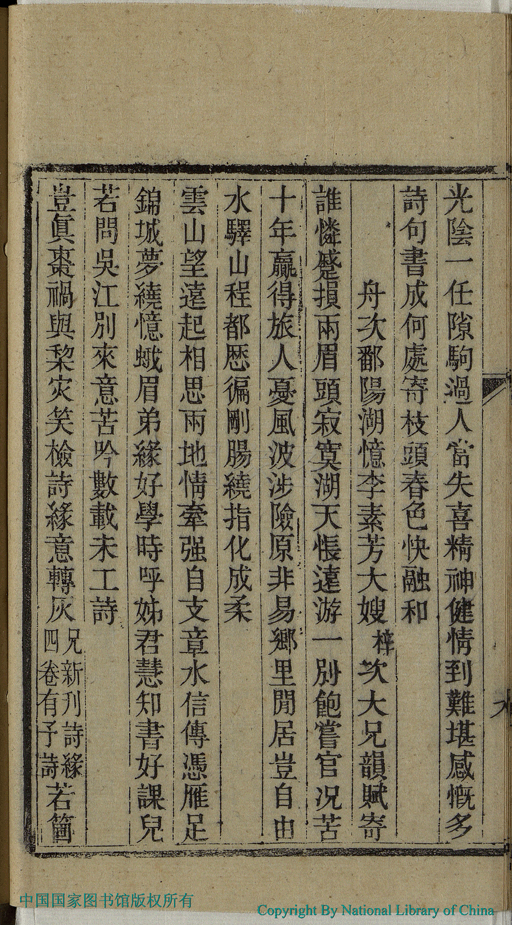 光陰一任隙駒過人當失喜精神健情到難堪感慨多
詩句書成何處寄枝頭春色快融和
舟次鄱陽湖憶李素芳大嫂梓次大兄韻賦寄
誰憐蹙損兩眉頭寂寞湖天悵遠游一別飽嘗官况苦
十年贏得旅人憂風波涉險原非易鄉里閒居豈自由
水驛山程都歴徧剛腸繞指化成柔
雲山望遠起相思兩地情牽强自支章水信傳憑雁足
錦城夢繞憶蛾眉弟緣好學時呼姊君慧知書好課兒
若問吳江別來意苦吟數載未工詩
豈眞棗禍與棃灾笑檢詩緣意轉灰兄新刊詩緣四卷有予詩若箇
中国国家图书馆版权所有
Copyright By National Library of China